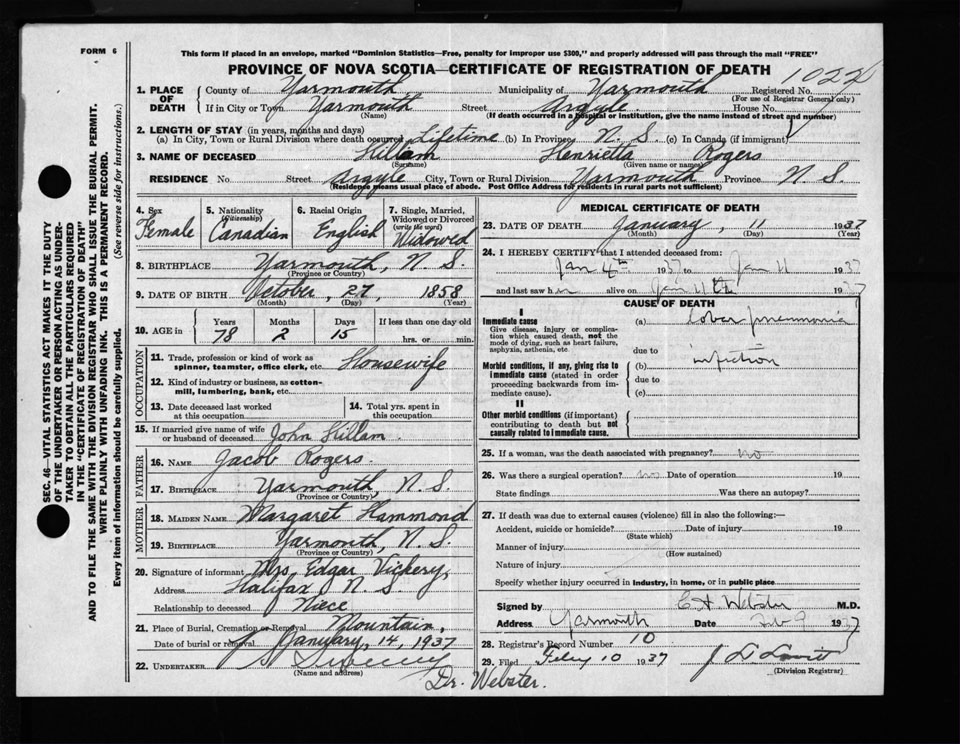 FORM 6
This form if placed in an envelope, marked "Dominion Statistics—Free, penalty for improper use $300," and properly addressed will pass through the mail "FREE"
PROVINCE OF NOVA SCOTIA—CERTIFICATE OF REGISTRATION OF DEATH
1022
1. PLACE OF DEATH County of Yarmouth Municipality of Yarmouth Registered No.
(For use of Registrar General only)
If in City or Town Yarmouth Street Argyle House No.
(Name) (If death occurred in a hospital or institution, give the name instead of street and number)
2. LENGTH OF STAY (in years, months and days)
(a) In City, Town or Rural Division where death occurred Lifetime (b) In Province N. S. (c) In Canada (if immigrant)
3. NAME OF DECEASED Hillam Henrietta Rogers
(Surname) (Given name or names)
RESIDENCE No. Street Argyle City, Town or Rural Division Yarmouth Province N S.
(Residence means usual place of abode. Post Office Address for residents in rural parts not sufficient)
4. Sex Female
5. Nationality (Citizenship) Canadian
6. Racial Origin English
7. Single, Married, Widowed or Divorced (write the word) Widowed
8. BIRTHPLACE Yarmouth, N. S.
(Province or Country)
9. DATE OF BIRTH October, 27, 1858
(Month) (Day) (Year)
10. AGE in Years Months Days If less than one day old
78 2 15 hrs. or min.
OCCUPATION
11. Trade, profession or kind of work as spinner, teamster, office clerk, etc. Housewife
12. Kind of industry or business, as cotton-mill, lumbering, bank, etc.
13. Date deceased last worked at this occupation
14. Total yrs. spent in this occupation
15. If married give name of wife or husband of deceased John Hillam
FATHER
16. NAME Jacob Rogers.
17. BIRTHPLACE Yarmouth, N. S.
(Province or Country)
MOTHER
18. MAIDEN NAME Margaret Hammond
19. BIRTHPLACE Yarmouth, N. S.
(Province or Country)
20. Signature of informant Mrs. Edgar Vickery,
Address Halifax N. S.
Relationship to deceased Niece
21. Place of Burial, Cremation or Removal Mountain,
Date of burial or removal January, 14, 1937
22. UNDERTAKER Sweeney
(Name and address)
Dr. Webster.
MEDICAL CERTIFICATE OF DEATH
23. DATE OF DEATH January, 11 1937
(Month) (Day) (Year)
24. I HEREBY CERTIFY that I attended deceased from:
Jan 4th 1937 to Jan 11 1937
and last saw her alive on Jan 11th 1937
CAUSE OF DEATH
I
Immediate cause
Give disease, injury or complication which caused death, not the mode of dying, such as heart failure, asphyxia, asthenia, etc.
(a) lobar pneumonia
due to
Morbid conditions, if any, giving rise to immediate cause (stated in order proceeding backwards from immediate cause).
(b) infection
due to
(c)
II
Other morbid conditions (if important) contributing to death but not causally related to immediate cause.
25. If a woman, was the death associated with pregnancy? no
26. Was there a surgical operation? no Date of operation 19
State findings Was there an autopsy?
27. If death was due to external causes (violence) fill in also the following:—
Accident, suicide or homicide? Date of injury 19
(State which)
Manner of injury
(How sustained)
Nature of injury
Specify whether injury occurred in industry, in home, or in public place
Signed by C. A. Webster M.D.
Address Yarmouth Date Feb 9 1937
28. Registrar's Record Number 10
29. Filed Feby 10 1937
(Division Registrar)
SEC. 46—VITAL STATISTICS ACT MAKES IT THE DUTY
OF THE UNDERTAKER OR PERSON ACTING AS UNDER-
TAKER TO OBTAIN ALL THE PARTICULARS REQUIRED
IN THE "CERTIFICATE OF REGISTRATION OF DEATH"
AND TO FILE THE SAME WITH THE DIVISION REGISTRAR WHO SHALL ISSUE THE BURIAL PERMIT.
WRITE PLAINLY WITH UNFADING INK. THIS IS A PERMANENT RECORD.
Every item of information should be carefully supplied. (See reverse side for instructions.)